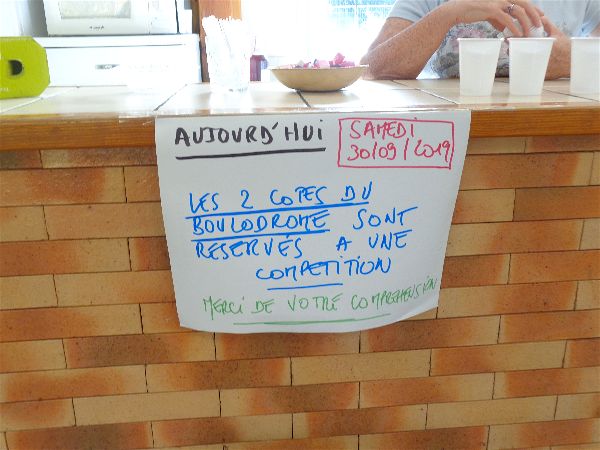 AUJOURD'HUI
SAMEDI
30/09/2019
LES 2 COTES DU
BOULODROME SONT
RESERVÉS A UNE
COMPETITION
MERCI DE VOTRE COMPREHENSION